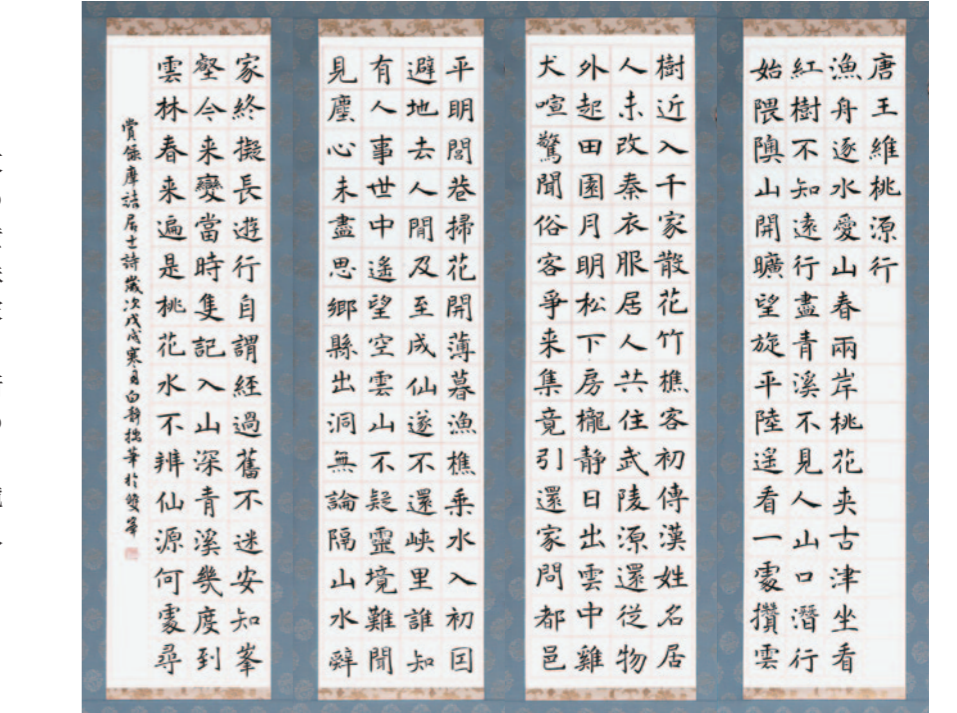 唐王維桃源行
漁舟逐水愛山春兩岸桃花夾古津坐看
紅樹不知遠行盡青溪不見人山口潛行
始隈隩山開曠望旋平陸遙看一處攢雲
樹近入千家散花竹樵客初傳漢姓名居
人未改秦衣服居人共住武陵源還從物
外起田園月明松下房櫳靜日出雲中雞
犬喧驚聞俗客爭来集竟引還家問都邑
平明閭巷掃花開薄暮漁樵乘水入初因
避地去人間及至成仙遂不還峽里誰知
有人事世中遙望空雲山不疑靈境難聞
見塵心未盡思鄉縣出洞無論隔山水辭
家終擬長遊行自謂經過舊不迷安知峯
壑今来變當時隻記入山深青溪幾度到
雲林春来遍是桃花水不辨仙源何處尋
賞錄摩詰居士詩歲次戊戌寒月白靜拙筆於雙峯